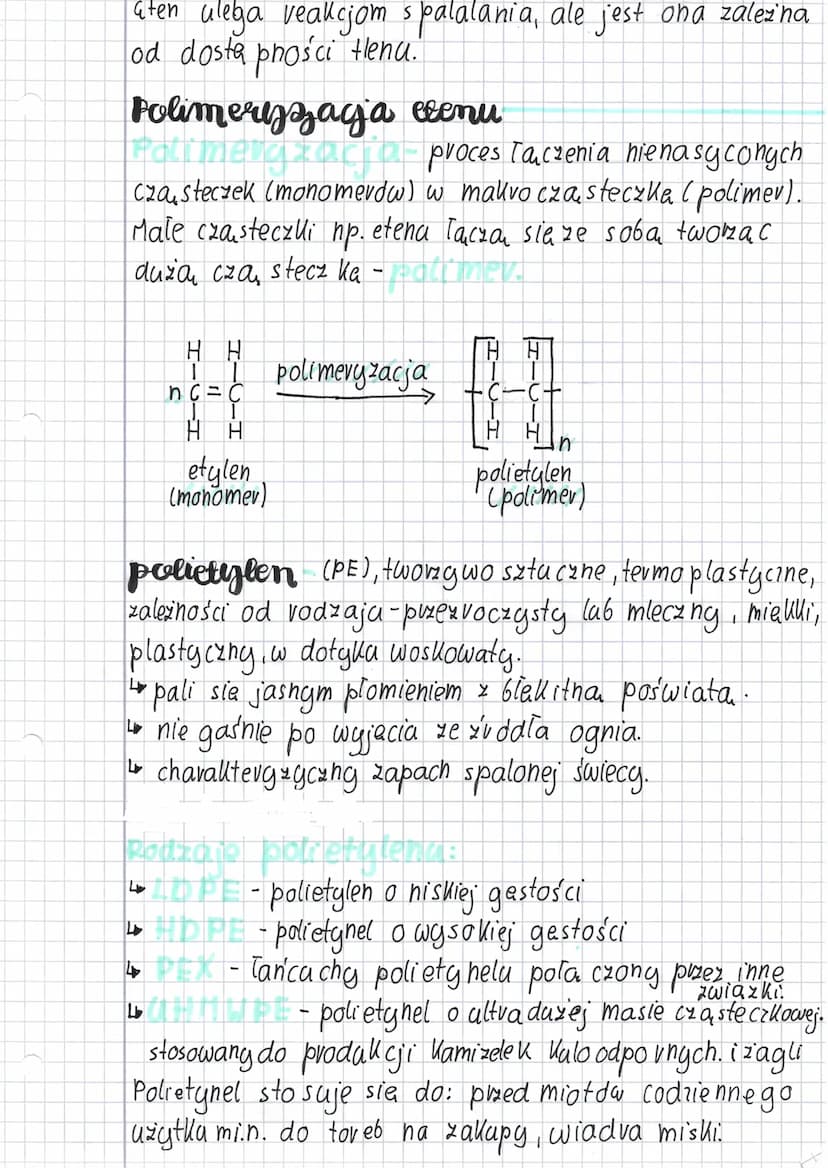 eten ulega reakcjom spalalania, ale jest ona zależna
od dostępności tlenu.
Polimeryzacja etenu
Polimeryzacja - proces łączenia nienasyconych
cząsteczek (monomerów) w makrocząsteczkę (polimer).
Małe cząsteczki np. etenu łączą się ze sobą tworząc
dużą cząsteczkę - polimer.
H H
H H
n C = C
polimeryzacja
C — C
H H
H H
n
etylen
(monomer)
polietylen
(polimer)
polietylen - (PE), tworzywo sztuczne, termoplastyczne,
zależności od rodzaju - przezroczysty lub mleczny, miękki,
plastyczny, w dotyku woskowaty.
↳ pali się jasnym płomieniem z błękitną poświatą.
↳ nie gaśnie po wyjęciu ze źródła ognia.
↳ charakterystyczny zapach spalonej świecy.
Rodzaje polietylenu:
↳ LDPE - polietylen o niskiej gęstości
↳ HDPE - polietynel o wysokiej gęstości
↳ PEX - łańcuchy polietynelu połączony przez inne
związki.
↳ UHMWPE - polietynel o ultradużej masie cząsteczkowej.
stosowany do produkcji kamizelek kuloodpornych. i żagli
Polietynel stosuje się do: przedmiotów codziennego
użytku m.in. do toreb na zakupy, wiadra miski.